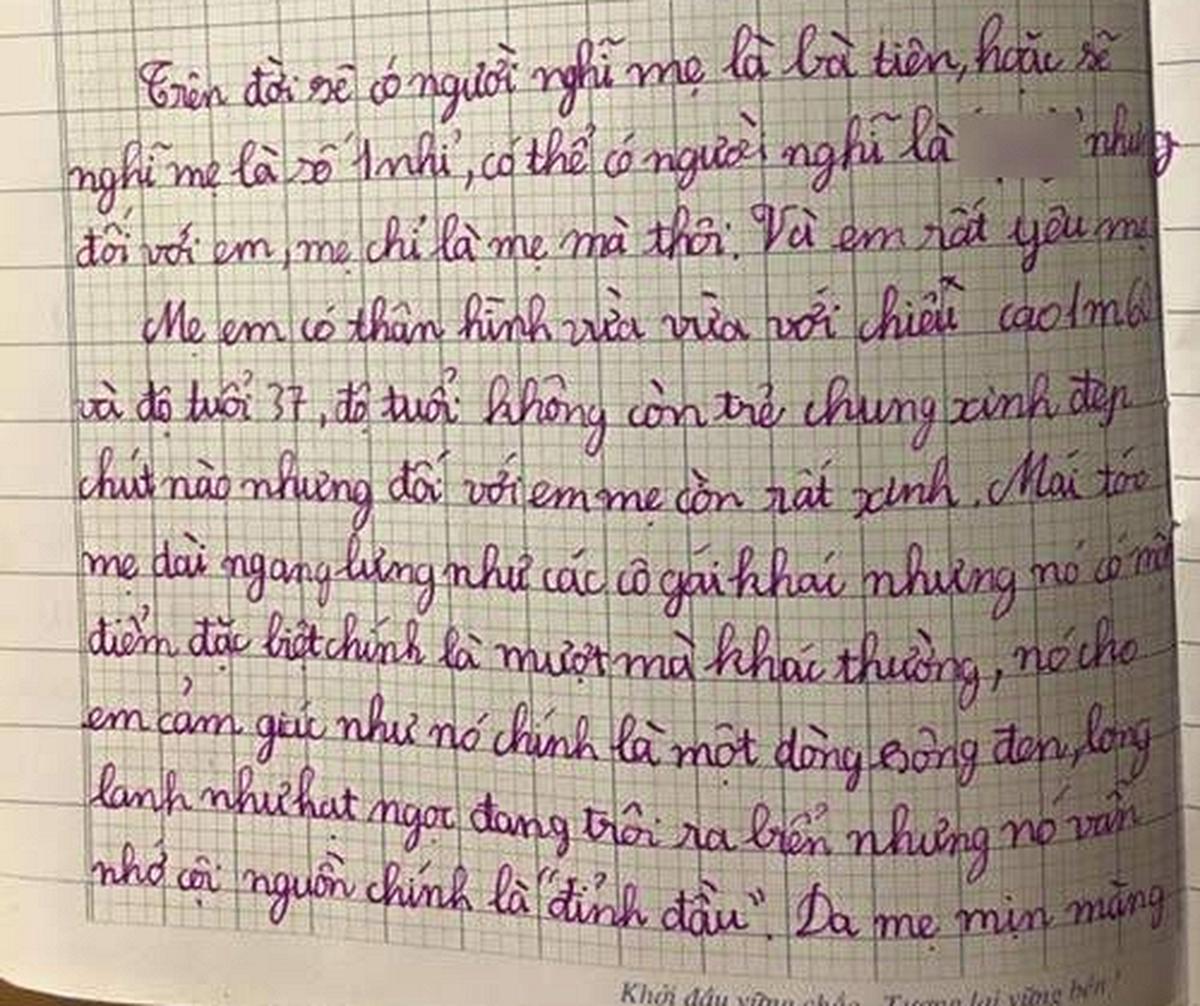 Trên đời sẽ có người nghĩ mẹ là bà tiên, hoặc sẽ
nghĩ mẹ là số 1 nhỉ, có thể có người nghĩ là nhưng
đối với em, mẹ chỉ là mẹ mà thôi. Và em rất yêu mẹ
Mẹ em có thân hình vừa vừa với chiều cao 1m60
và độ tuổi 37, độ tuổi không còn trẻ chung xinh đẹp
chút nào nhưng đối với em mẹ còn rất xinh. Mái tóc
mẹ dài ngang lưng như các cô gái khác nhưng nó có một
điểm đặc biệt chính là mượt mà khác thường, nó cho
em cảm giác như nó chính là một dòng sông đen, long
lanh như hạt ngọc đang trôi ra biển nhưng nó vẫn
nhớ cội nguồn chính là "đỉnh đầu". Da mẹ mịn màng
Khởi đầu vững chắc - Tương lai vững bền